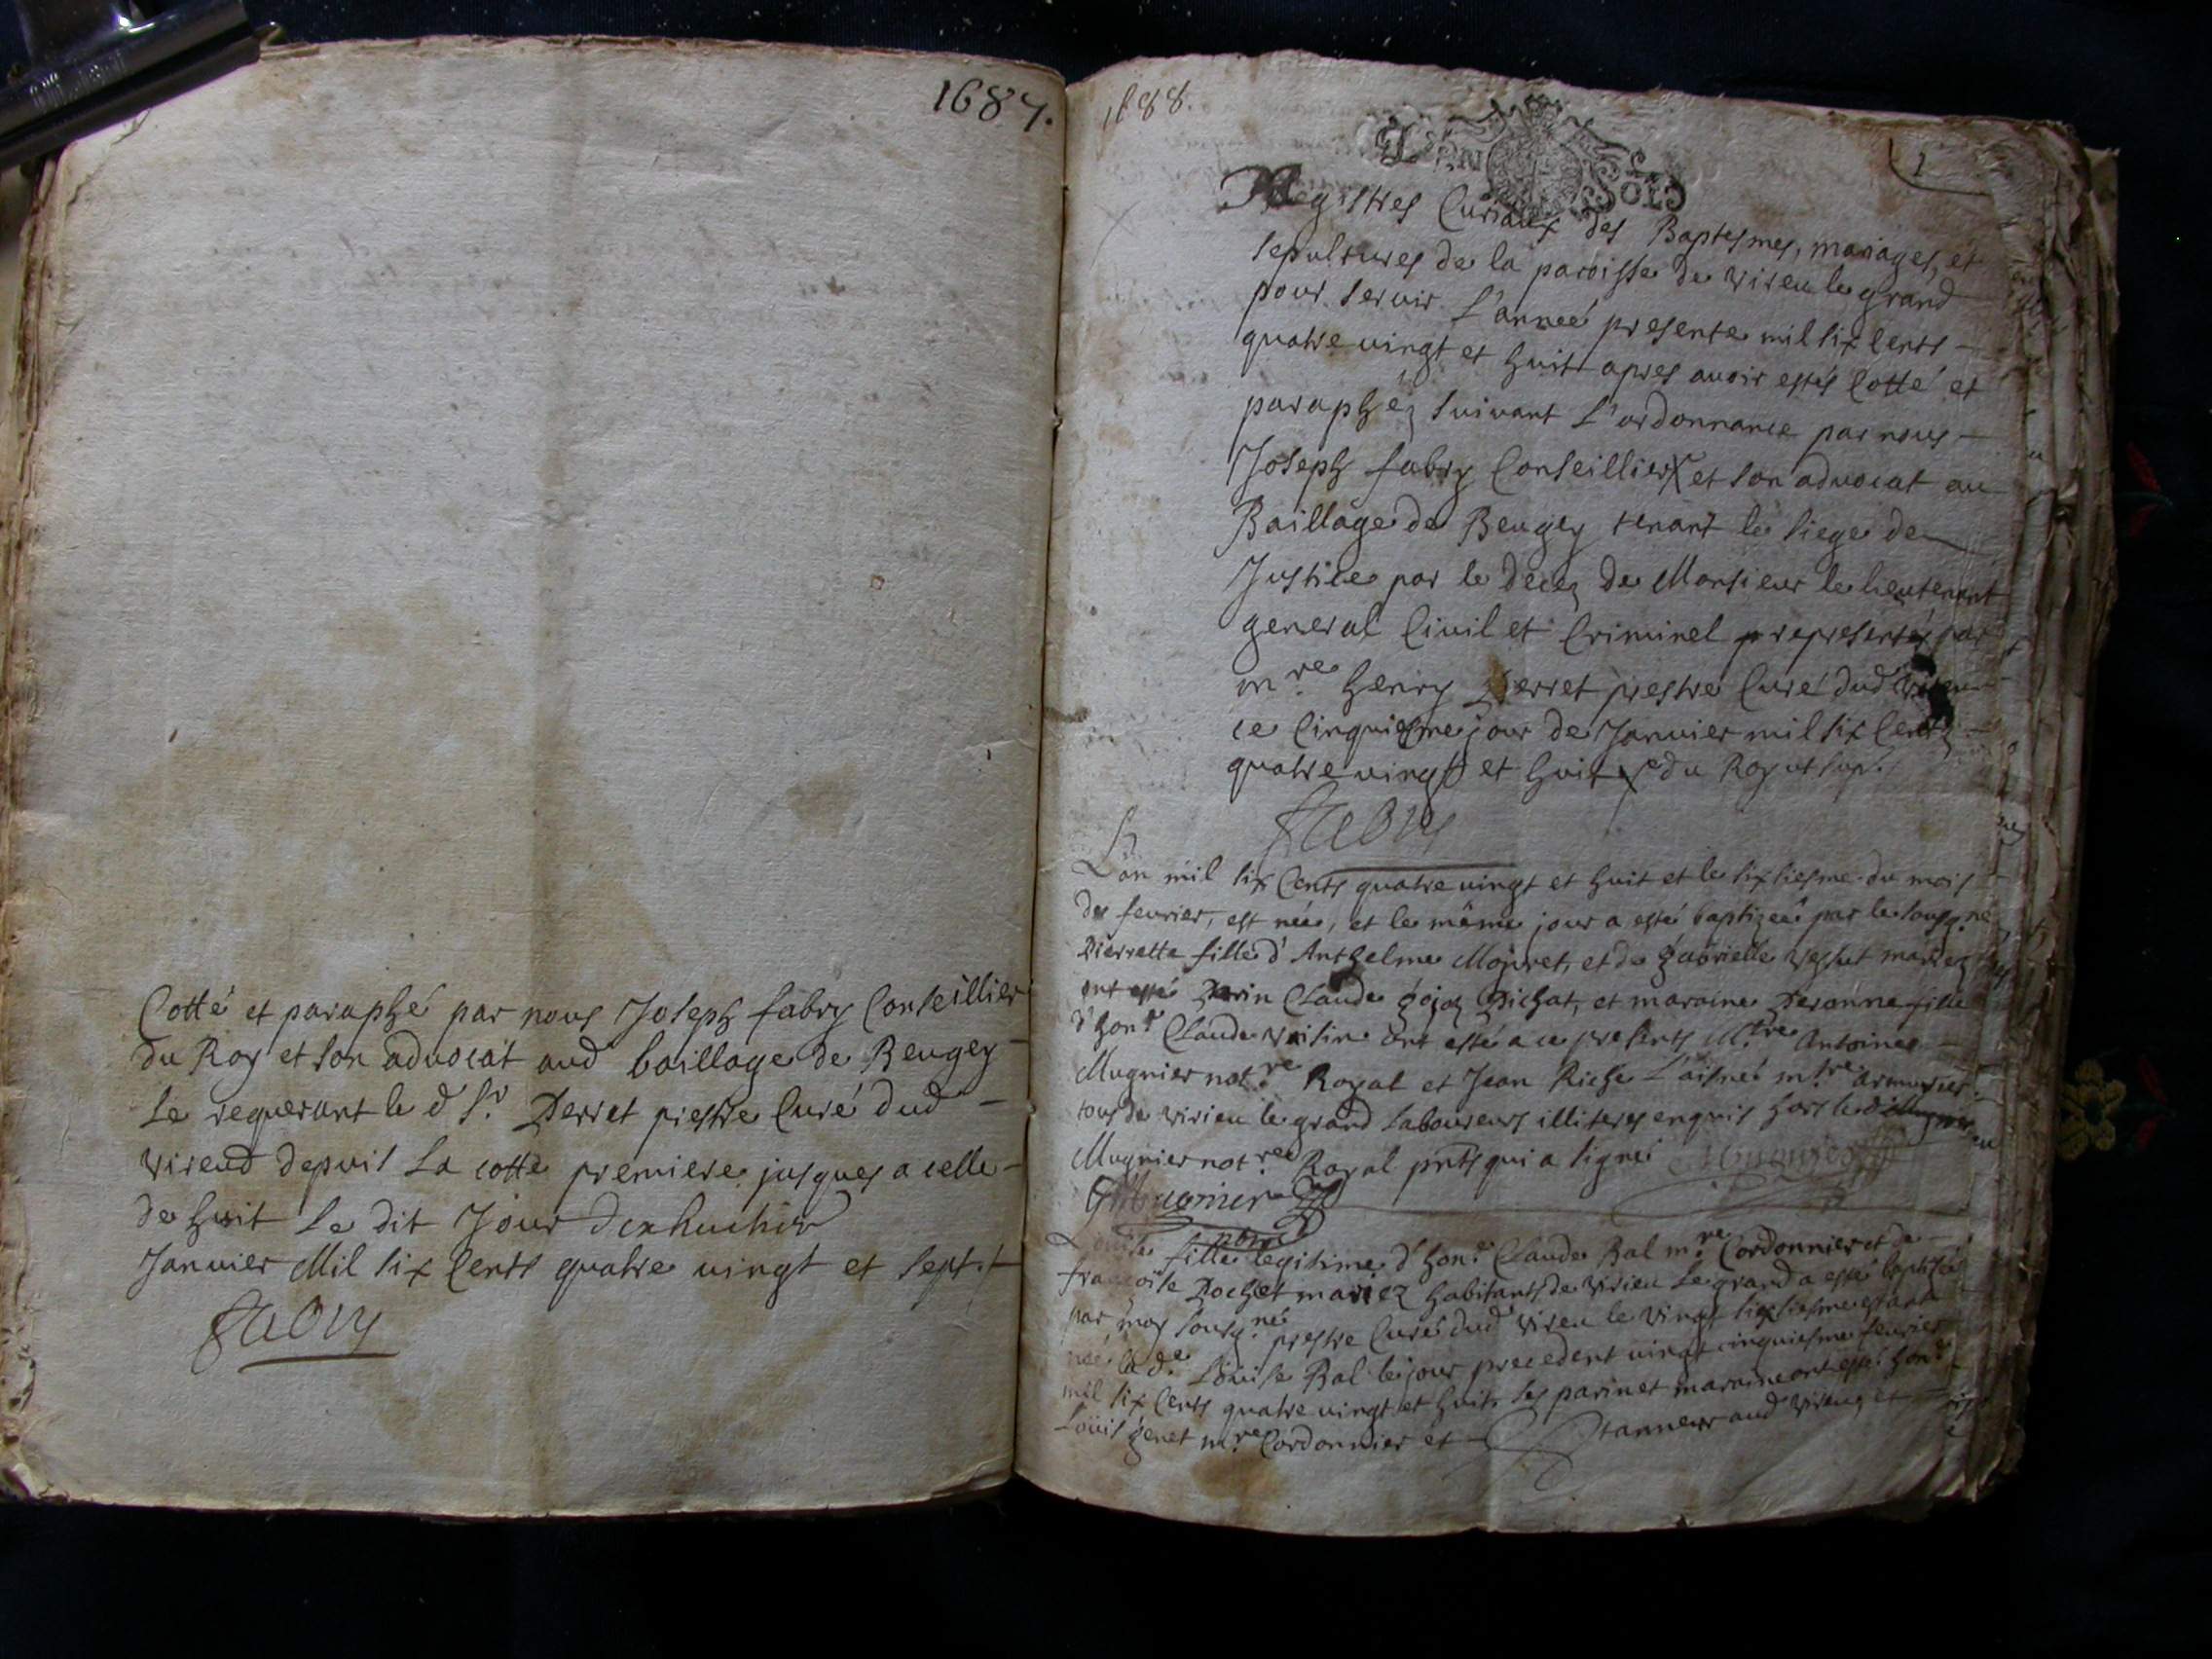 1687.
Cotté et paraphé par nous Joseph fabry Conseillier
du Roy et son advocat aud baillage de Beugey
Le requerant le d Sr. Perret prestre Curé dud
Virieud depuis La cotte premiere jusques a celle
de huit Le dit Jour
Janvier Mil six Cents quatre vingt et sept
fabry
1688.
1
UN SOLS
Registres Curiaux des Baptesmes, mariages, et
sepultures de la paroisse de Virieu le grand
pour servir L'année presente mil six Cents
quatre vingt et huit apres avoir estés Cotté et
paraphéz suivant L'ordonnance par nous
Joseph fabry Conseillier X et son advocat au
Baillage de Beugey tenant le siege de
Justice par le decez de Monsieur le lieutenant
general Civil et Criminel representés par
mre. henry Perret prestre Curé dud Virieu
ce Cinquiesme jour de Janvier mil six Cents
quatre vingt et huit X du Roy ut sup.
fabry
L'an mil six Cents quatre vingt et huit et le sixsiesme du mois
de fevrier, est née, et le même jour a esté baptizeé par le sousg.né
Pierrette fille d'Anthelme Mojret, et de gabrielle Vessut mariez
ont esté Parin Claude gojoz Pichat, et maraine Peronne fille
d'hon.e Claude Voisin ont esté a ce presents M.tre Antoine
Mugnier not.re Royal et Jean Riche L'aisné m.tre armurier
tous de Virieu le grand laboureurs illiteres enquis hors led Mugnier
Mugnier not.re Royal pnts qui a signé
Mugnier
Louise fille legitime d'hon.e Claude Bal m.re Cordonnier et de
françoise Pochet mariez habitants de Virieu Le grand a esté baptisée
par moy sousg.né prestre Curé dud Virieu le Vingt sixsiesme estant
née la d.e Louise Bal le jour precedent vingt cinquiesme fevrier
mil six Cents quatre vingt et huit. Les parin et maraine ont esté hon.e
Louis genet m.re Cordonnier et tanneur aud Virieu, et